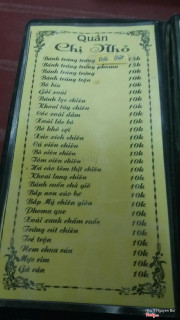 Quán
Chị Nhỏ
Bánh tráng nướng 15k
Bánh tráng nướng phomai 15k
Bánh tráng trứng 10k
Bánh tráng trộn 10k
Bò bía 10k
Gỏi xoài 10k
Bánh lọc chiên 10k
Khoai tây chiên 10k
Cóc xoài dầm 10k
Xoài lắc 10k
Bò khô sợi 10k
Xúc xích chiên 10k
Cá viên chiên 10k
Bò viên chiên 10k
Tôm viên chiên 10k
Há cảo tôm thịt chiên 10k
Khoai lang chiên 10k
Bánh cuốn chả giò 10k
Bắp non xào bò 10k
Bắp Mỹ chiên giòn 10k
Phomai que 10k
Xoài xanh chấm ruốc 10k
Trứng cút chiên 10k
Tré trộn 10k
Nem chua rán 10k
Mực rim 10k
Gà rán 10k